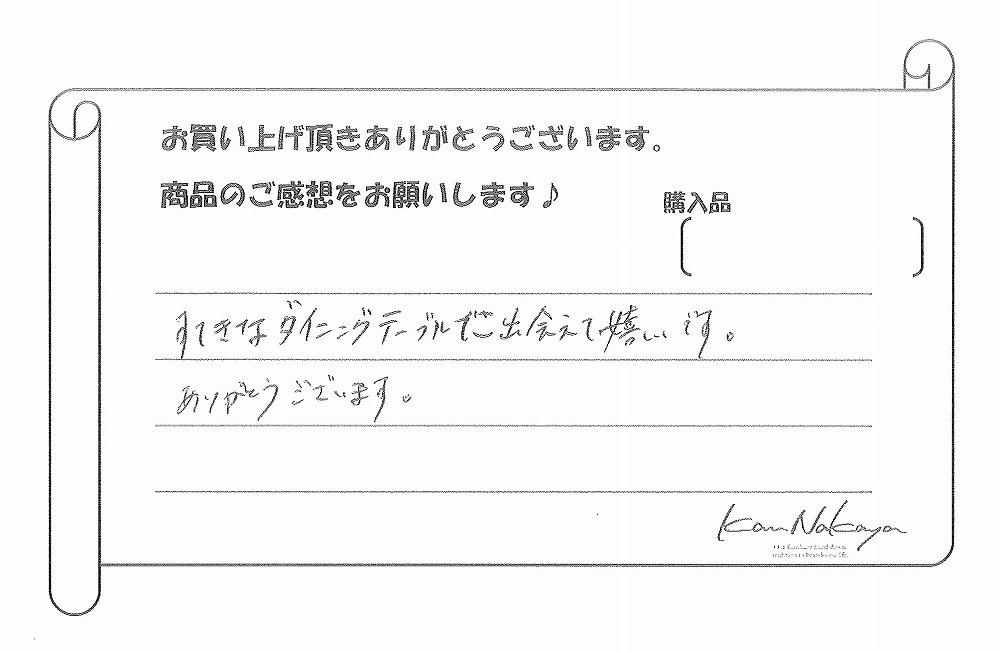 お買い上げ頂きありがとうございます。
商品のご感想をお願いします♪
購入品
すてきなダイニングテーブル 出会えて嬉しいです。
ありがとうございます。
KanNakaya